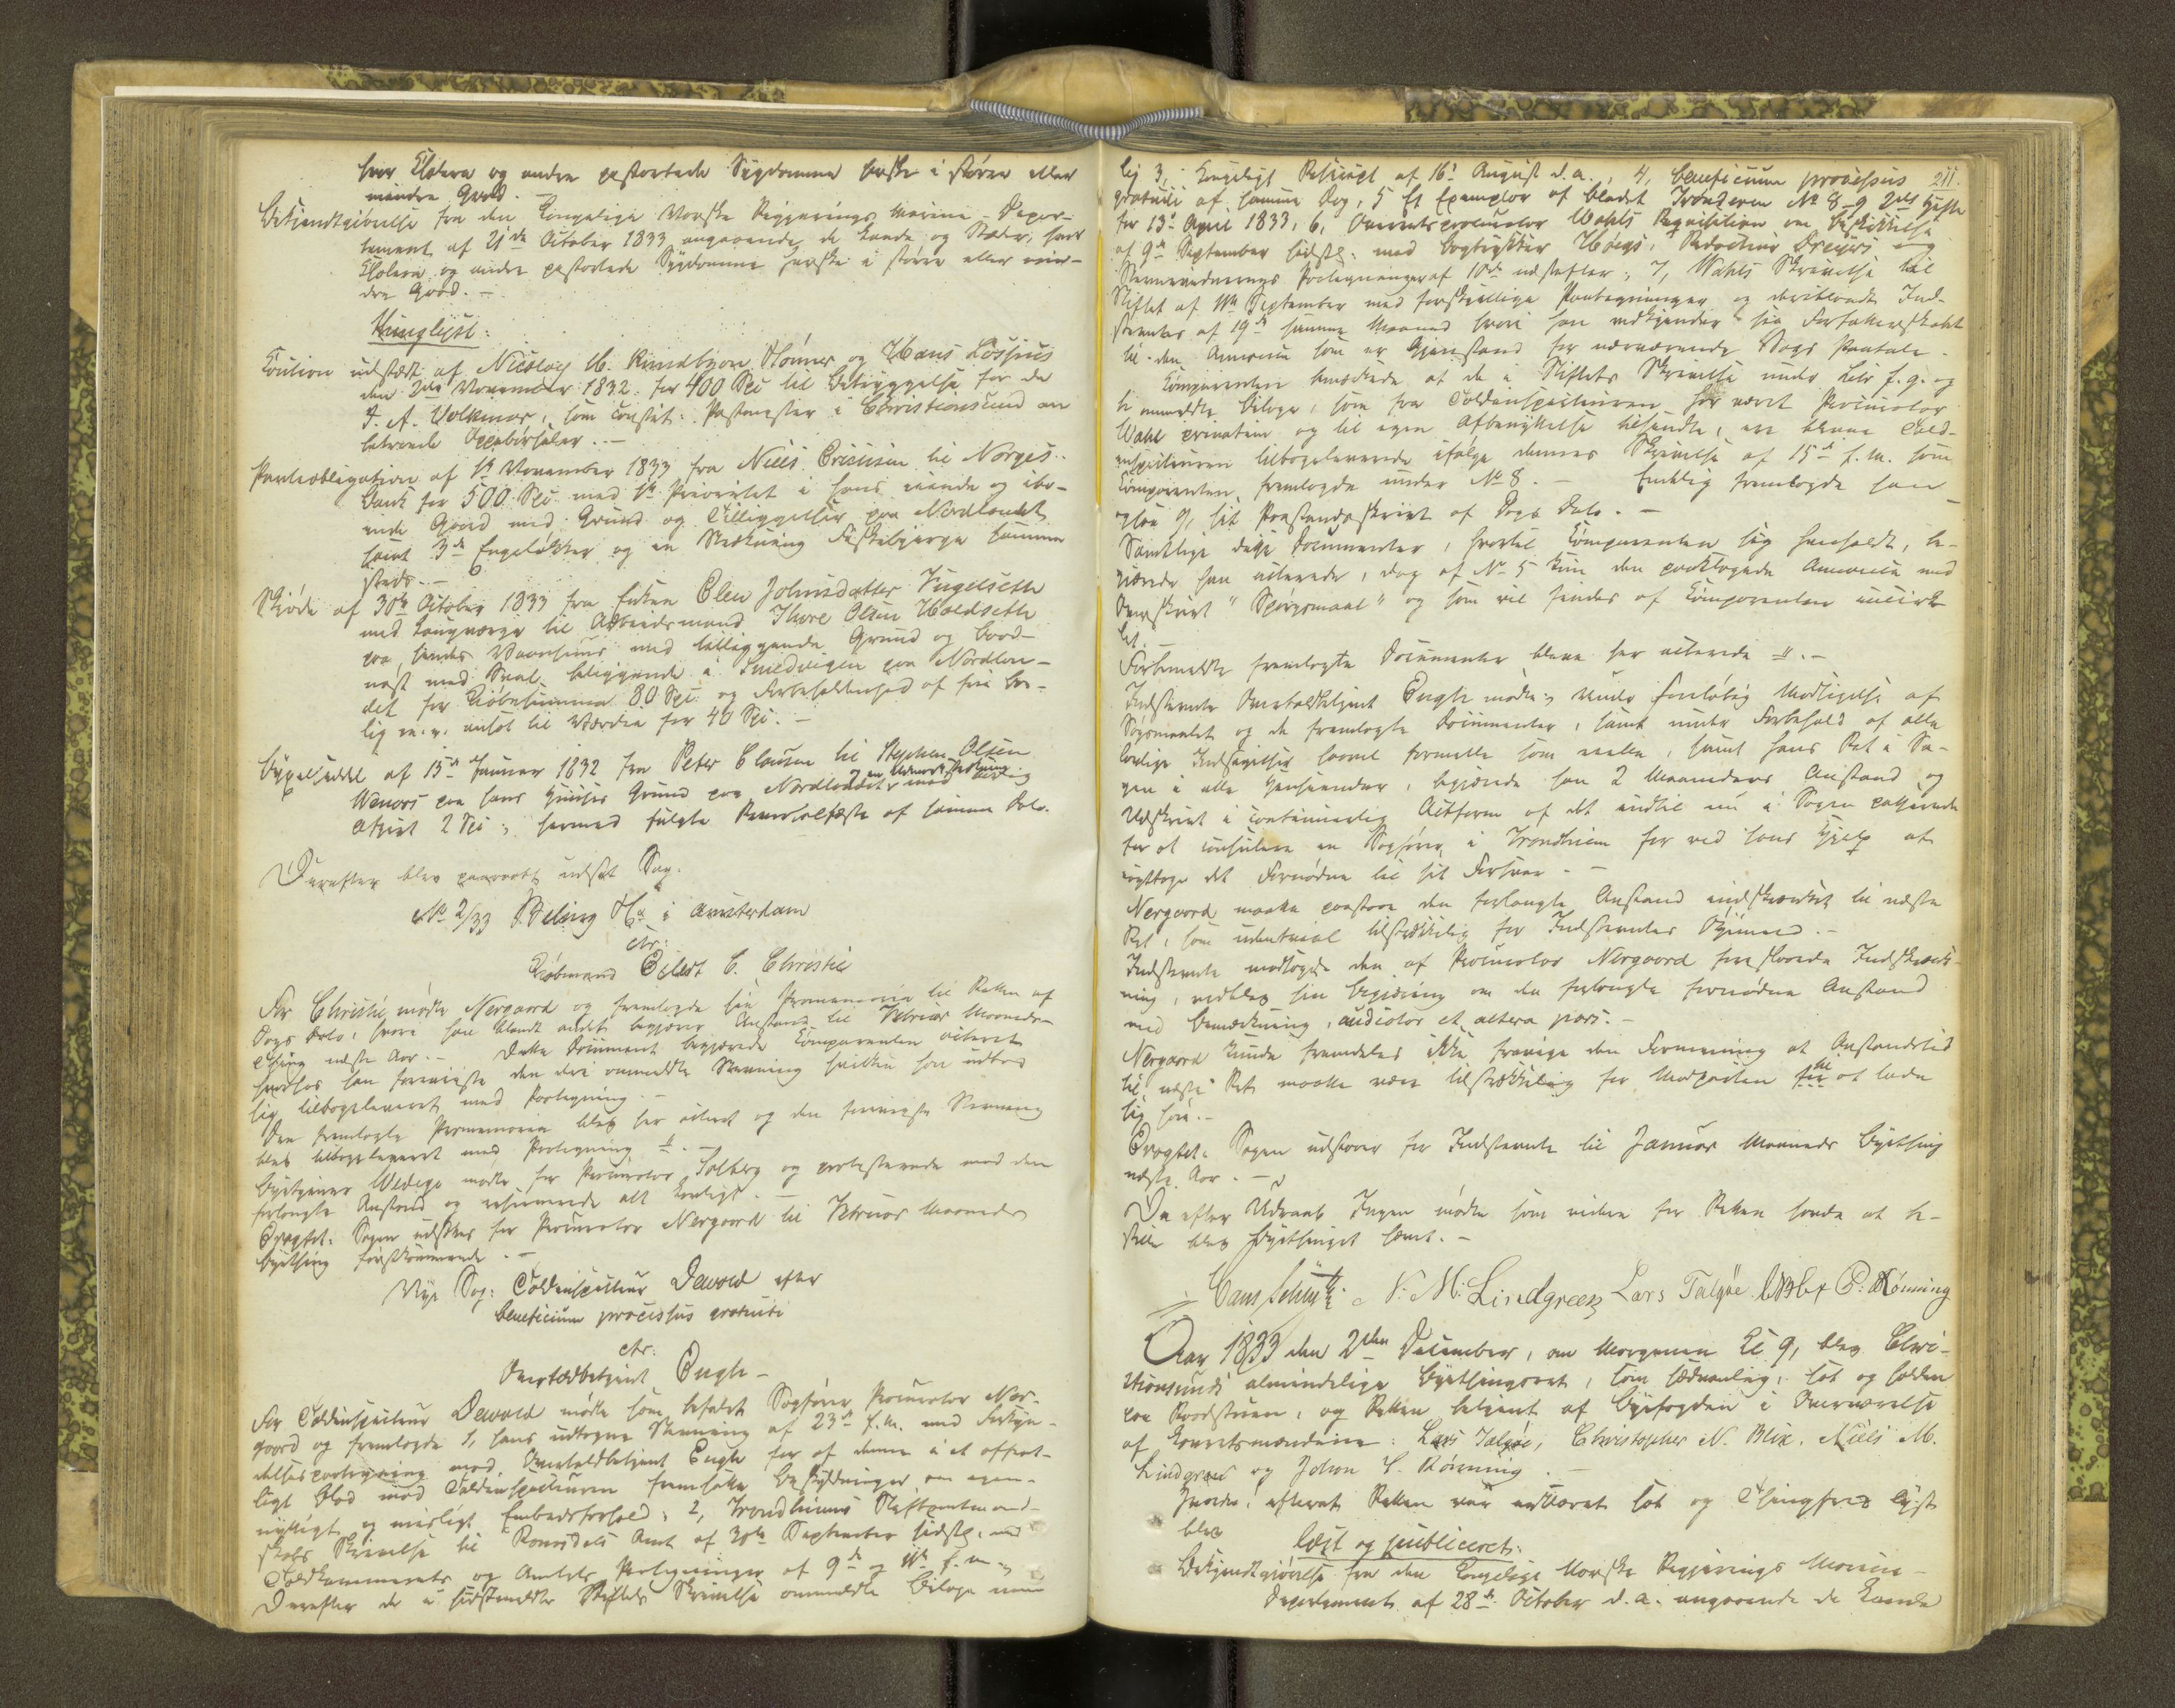 hvor Cholera og andre pestartede Sygdomme herske i större eller
mindre Grad.
Bekjendtgjörelse fra den Kongelige Norske Regjerings Marine-Depar-
tement af 21de October 1833 angaaende de Lande og Stæder, hvor
Cholera og andre pestartede Sygdomme herske i större eller min-
dre Grad.-
Thinglyst:
Caution udstædt af Nicolay H. Knudtzon Hönner og Hans
den 2den November 1832 for 400 Spd til Betryggelse for de
J. A. Volkmar, som constit: Postmester i Christiansund an
betroende Oppebörseler.-
Panteobligation af 1ste November 1833 fra Niels Ericksen til Norges
Bank for 500 Spd med 1ste Prioritet i hans eiende og ibo-
ende Gaard med Grund og Tilliggelser paa Nordlandet
samt 3de Engelökker og en Strækning Fiskebjerge samme
steds.-
Skjöde af 30te October 1833 fra Enken Elen Johnsdatter Ingelseth
med Laugværge til Arbeidsmand Thore Olsen Holdseth
paa hendes Vaanhuus med tilliggende Grund og Bord-
nöst med Sval, beliggende i Smedvigen paa Nordlan-
det for Kjöbesumma 80 Spd og Forbeholdenhed af frie Bo-
lig m.v. anslot til Værdie for 40 Spd.-
Bygselseddel af 15de Januar 1832 fra Peter Clausen til Stephen Olsen
Wenors paa hans Huuses Grund paa Nordlandet mod aarlig
Afgivt 2 Spd; hermed fulgte af samme Dato.
Derefter blev paaraabt udsat Sag.
No 2/33 Beling & i Amsterdam
ctr:
Kjöbmand Eilert C. Christie
For Christie mödte Nergaard og fremlagde sin Promemoria til Retten af
Dags Dato, hvori han blandt andet begjærer Anstand til Februar Maaneds
Thing næste Aar.- Dette Document begjærede Comparenten acteret
hvorhos han foreviiste den deri ommeldte Stævning hvilken han udbad
sig tilbageleveret med Paategning.-
Den fremlagte Promemoria blev her acteret og den foreviiste Stævning
blev tilbageleveret med Paategning.-
Bytjener Wedege mödte for Procurator Solberg og protesterede mod den
forlangte Anstand og reserverede alt Lovligt.-
Eragtet: Sagen udsættes for Procurator Nergaard til Februar Maaneds
Bything förstkommende.-
Nye Sag: Toldinspecteur Dewold efter
beneficium processus gratuiti
ctr:
Overtoldbetjent Engh-
For Toldinspecteur Dewold mödte som befalet Sagförer Procurator Ner-
gaard og fremlagde 1, hans udtagne Stævning af 23de f.M. med Forkyn-
delsespaategning mod Overtoldbetjent Engh for af denne i et offent-
ligt Blad mod Toldinspecteuren fremsatte Beskyldninger om egen-
nyttigt og Embedsforhold; 2, Trondhiems Stiftamtmand-
skabs Skrivelse til Romsdals Amt af 30te September sidstl. med
Toldkammerets og Amtets Paategninger af 9de og f.M.
Derefter de i sidstmeldte Stiftets Skrivelse ommeldte Bilage nem-
211.
lig 3, Kongeligt Rescript af 16de August d.a., 4, beneficium processus
gratuiti af samme Dag, 5 Et Exemplar af Bladet Tronderen No 8-9 2det Hefte
for 13de April 1833, 6, Overretsprocurator Wahls Requisition om Beskikkelse
af 9de September sidstl. med Bogtrykker Höegs, Redacteur Dreyers og
Paategninger af 10de udstæder; 7, Wahls Skrivelse til
Stiftet af 11te September med forskjellige Paategninger og deriblandt Ind-
stævntes af 19de samme Maaned hvori han vedkjender sig Forfatterskabet
til den Annonce som er Gjenstand for nærværende Sags Paatale.
Comparenten bemærkede at de i Stiftets Skrivelse under Litr f. g. og
h ommeldte Bilage, som fra Toldinspecteuren har været Procurator
Wahl privatim og til egen Afbenyttelse tilsendte, ere denne Told-
inspecteuren tilbageleverede ifölge dennes Skrivelse af 15de f.M. som
Comparenten fremlagde under No 8.- Endelig fremlagde han
ogsaa 9, sit Paastandsskrivt af Dags Dato.-
Samtlige disse Documenter, hvortil Comparenten sig henholdt, be-
gjærede han acterede, dog af No 5 kun den paaklagede Annonce med
Overskrivt "Spörgsmaal" og som vil findes af Comparenten
let.-
Forbemeldte fremlagte Documenter bleve her acterede.-
Indstævnte Overtoldbetjent Engh mödte; Under foreløbig Modsigelse af
Sögsmaalet og de fremlagte Documenter, samt under Forbehold af alle
lovlige Indsigelser saavel formelle som reelle, samt hans Ret i Sa-
gen i alle Henseender, begjærede han 2 Maaneders Anstand og
Udskrivt i continuerlig Actform af det indtil nu i Sagen passerede
for at consulere en Sagförer i Trondhiem for ved hans Hjelp at
iagttage det Fornödne til sit Forsvar.-
Nergaard maatte paastaae den forlangte Anstand indskrænket til næste
Ret, som udentvivl tilstrækkelig for Indstævntes Öjemed.-
Indstævnte modsagde den af Procurator Nergaard foreslaaede Indskrænk-
ning, vedblev sin Begjæring om den forlangte fornödne Anstand
med Bemærkning, audiatur et altera pars.-
Nergaard kunde fremdeles ikke fravige den Formening at Anstandstid
til næste Ret maatte være tilstrækkelig for Modparten til at lade
sig höre.-
Eragtet: Sagen udstaaer for Indstævnte til Januar Maaneds Bything
næste Aar.-
Da efter Udraab Ingen mödte som videre for Retten havde at be-
stille blev Bythinget hævet.-
Hans Schütz. N: M: Lindgreen Lars Talgöe P: Rönning
Aar 1833 den 2den December, om Morgenen Kl 9, blev Chri-
stiansunds almindelige Bythingsret, som sædvanlig, sat og holden
paa Raadstuen, og Retten betjent af Byfogden i Overværelse
af Laugrettesmændene: Lars Talgöe, Christopher N. Blix, Niels M.
Lindgreen og Johan P. Rönning.-
Hvorda! efterat Retten var erklæret sat og Thingfred lyst
blev
læst og publiceret:
Bekjendtgjörelse fra den Kongelige Norske Regjerings Marine-
Departement af 28de October d.a. angaaende de Lande